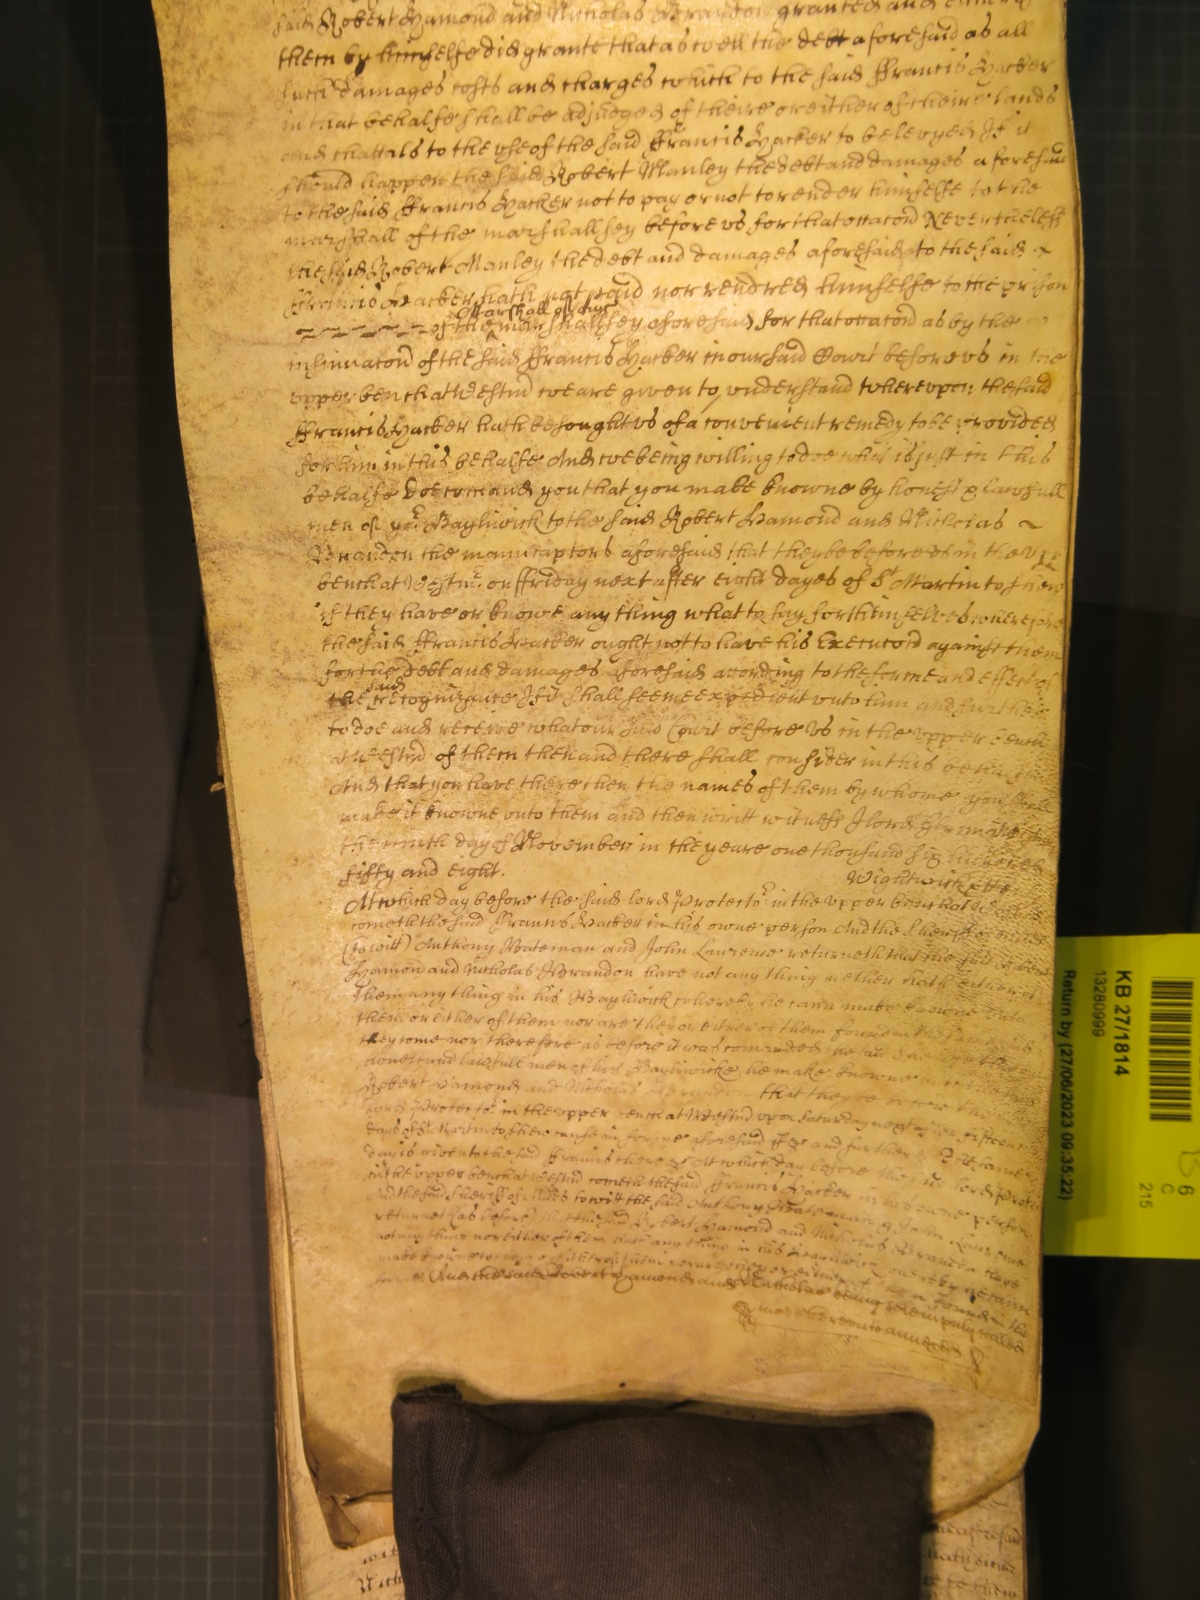 said Robert Hamond and Nicholas Brandon granted and either of
them by himselfe did grante that as well the debt aforesaid as all
such damages costs and charges which to the said Francis Hacker
in that behalfe shall be adjudged of theire or either of theire lands
and chattals to the use of the said Francis Hacker to be levyed If it
should happen the said Robert Manley the debt and damages aforesaid
to the said Francis Hacker not to pay or not to render himselfe to the
marshall of the marshallsey before vs for that occacon Nevertheless
the said Robert Manley the debt and damages aforesaid to the said
Francis Hacker hath not paid nor rendred himselfe to the prison
Marshall of the
of the marshallsey aforesaid for that occacon as by the
insinuacon of the said Francis Hacker in our said Court before vs in the
vpper bench at Westm we are given to vnderstand wherevpon the said
Francis Hacker hath besought vs of a convenient remedy to be provided
for him in this behalfe And we being willing to doe what is just in this
behalfe Doe comand you that you make knowne by honest & lawfull
men of yor Baylywick to the said Robert Hamond and Nicholas
Brandon the manucaptors aforesaid that they be before vs in the vpp
bench at Westm on Friday next after eight dayes of St Martin to shew
if they have or knowe any thing what to say for themselves wherefore
the said Francis Hacker ought not to have his Execucon against them
for the debt and damages aforesaid according to the forme and effect of
said
the recognizance If it shall seeme expedient vnto him and further
to doe and receive what our said Court before vs in the vpper bench
at Westm of them then and there shall consider in this behalfe
And that you have there then the names of them by whome you shall
make it knowne vnto them and then writt witness
the ninth day of November in the yeare one thousand six hundred
fifty and eight.
Wightwick
At which day before the said lord Protector in the vpper bench at
cometh the said Francis Hacker in his owne person And the Sheriffe
(to witt) Anthony Bateman and John Lawrence returneth that the said Robert
Hamon and Nicholas Brandon have not any thing nether hath either of
them any thing in his Baylywick whereby he cann make knowne vnto
them or either of them nor are they or either of them found in the same
they come nor therefore as before it was comanded the said
honest and lawfull men of his Baylywicke he make knowne
Robert Hamond and Nicholas Brandon that they be before the
lord Protector in the vpper bench at Westm vpon Saturday next after fifteene
dayes of St Martin to shew in forme aforesaid &c and further &c The same
day is given to the said Francis there &c At which day before the said lord Protector
in the vpper bench at Westm cometh the said Francis Hacker in his owne person
And the said Sheriffe of Midds to witt the said Anthony Bateman & John Lawrence
returneth (as before) that the said Robert Hamond and Nicholas Brandon have
not any thing nor either of them hath any thing in his Baylywick whereby he cann
make knowne to them or either of them nor are they or either of them found in the
same And the said Robert Hamond and Nicholas being solemnly called
more hereunto annexed
KB 27/1814
13280999
Return by (27/06/2023 09:35:22)
B 6
C
215